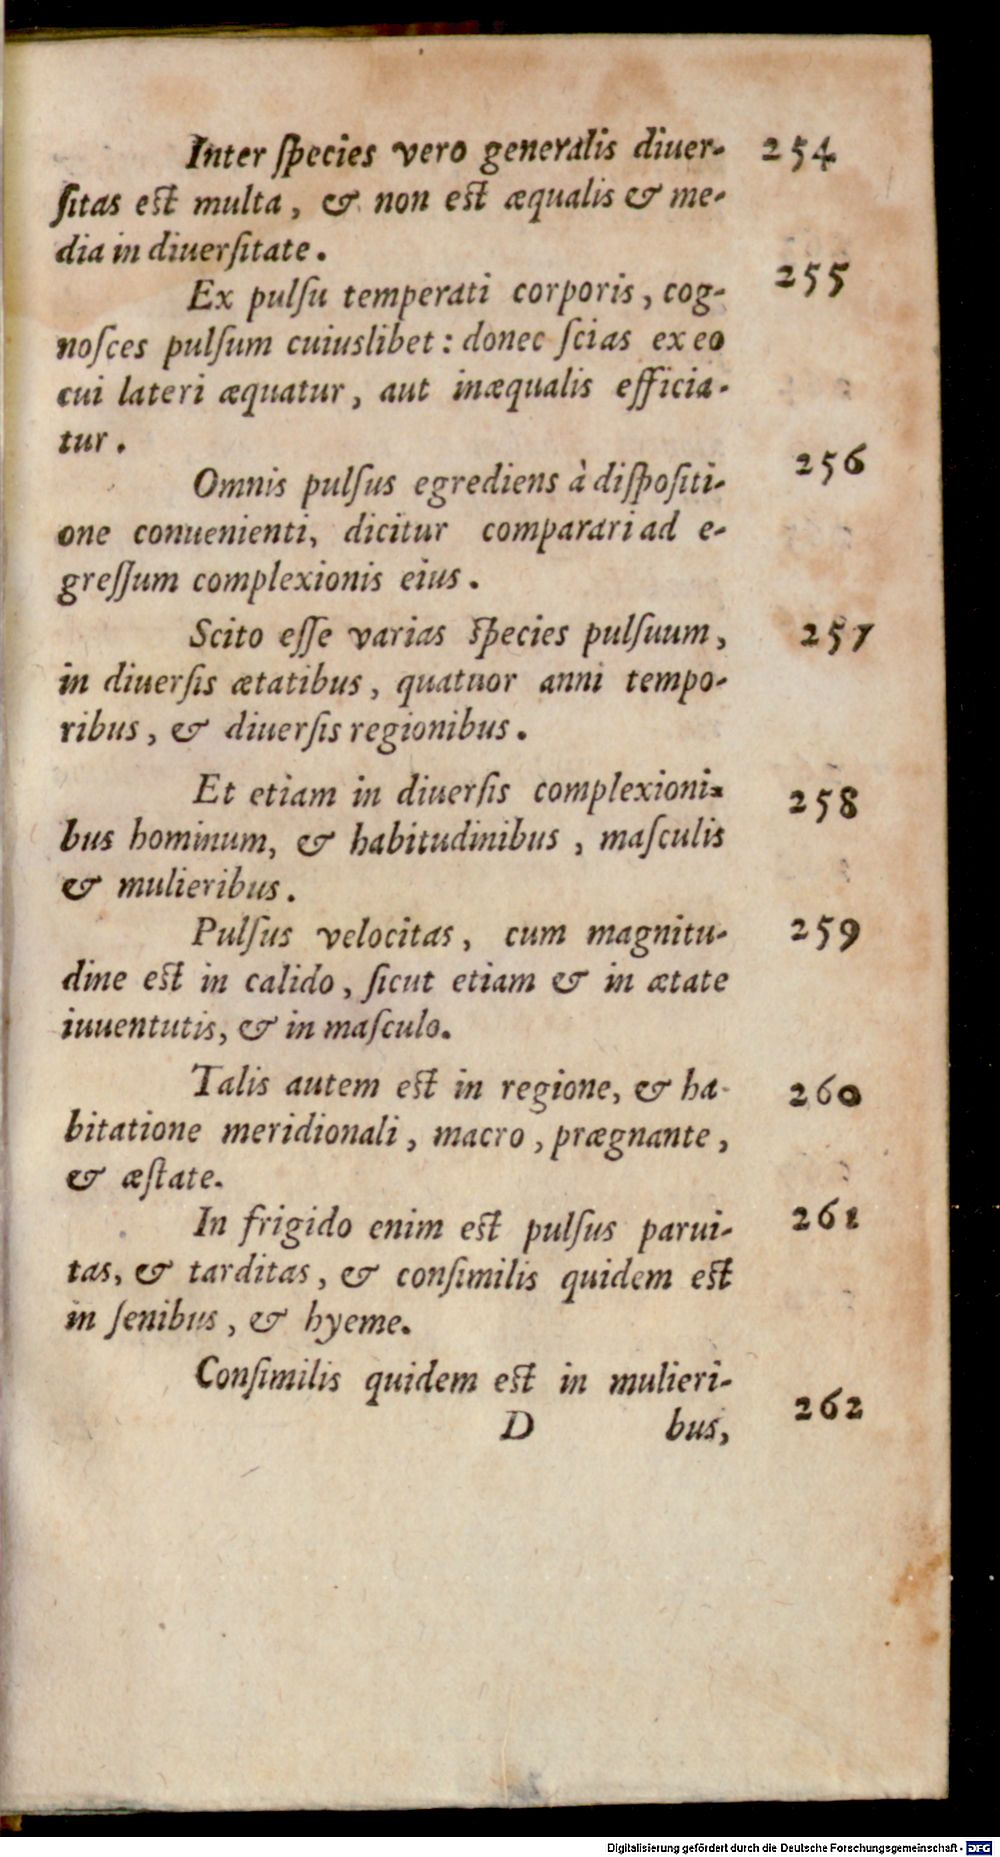 Inter ſpecies vero generalis diuer- 254
ſitas est multa, & non est æqualis & me-
dia in diuerſitate.
Ex pulſu temperati corporis, cog- 255
noſces pulſum cuiuslibet: donec ſcias ex eo
cui lateri æquatur, aut inæqualis efficia-
tur.
Omnis pulſus egrediens à diſpoſiti- 256
one conuenienti, dicitur comparari ad e-
greſſum complexionis eius.
Scito eſſe varias ſpecies pulſuum, 257
in diuerſis ætatibus, quatuor anni tempo-
ribus, & diuerſis regionibus.
Et etiam in diuerſis complexioni- 258
bus hominum, & habitudinibus, maſculis
& mulieribus.
Pulſus velocitas, cum magnitu- 259
dine est in calido, ſicut etiam & in ætate
iuuentutis, & in maſculo.
Talis autem est in regione, & ha- 260
bitatione meridionali, macro, prægnante,
& æſtate.
In frigido enim est pulſus parui- 261
tas, & tarditas, & conſimilis quidem est
in ſenibus, & hyeme.
Conſimilis quidem est in mulieri- 262
D bus,
Digitalisierung gefördert durch die Deutsche Forschungsgemeinschaft - DFG